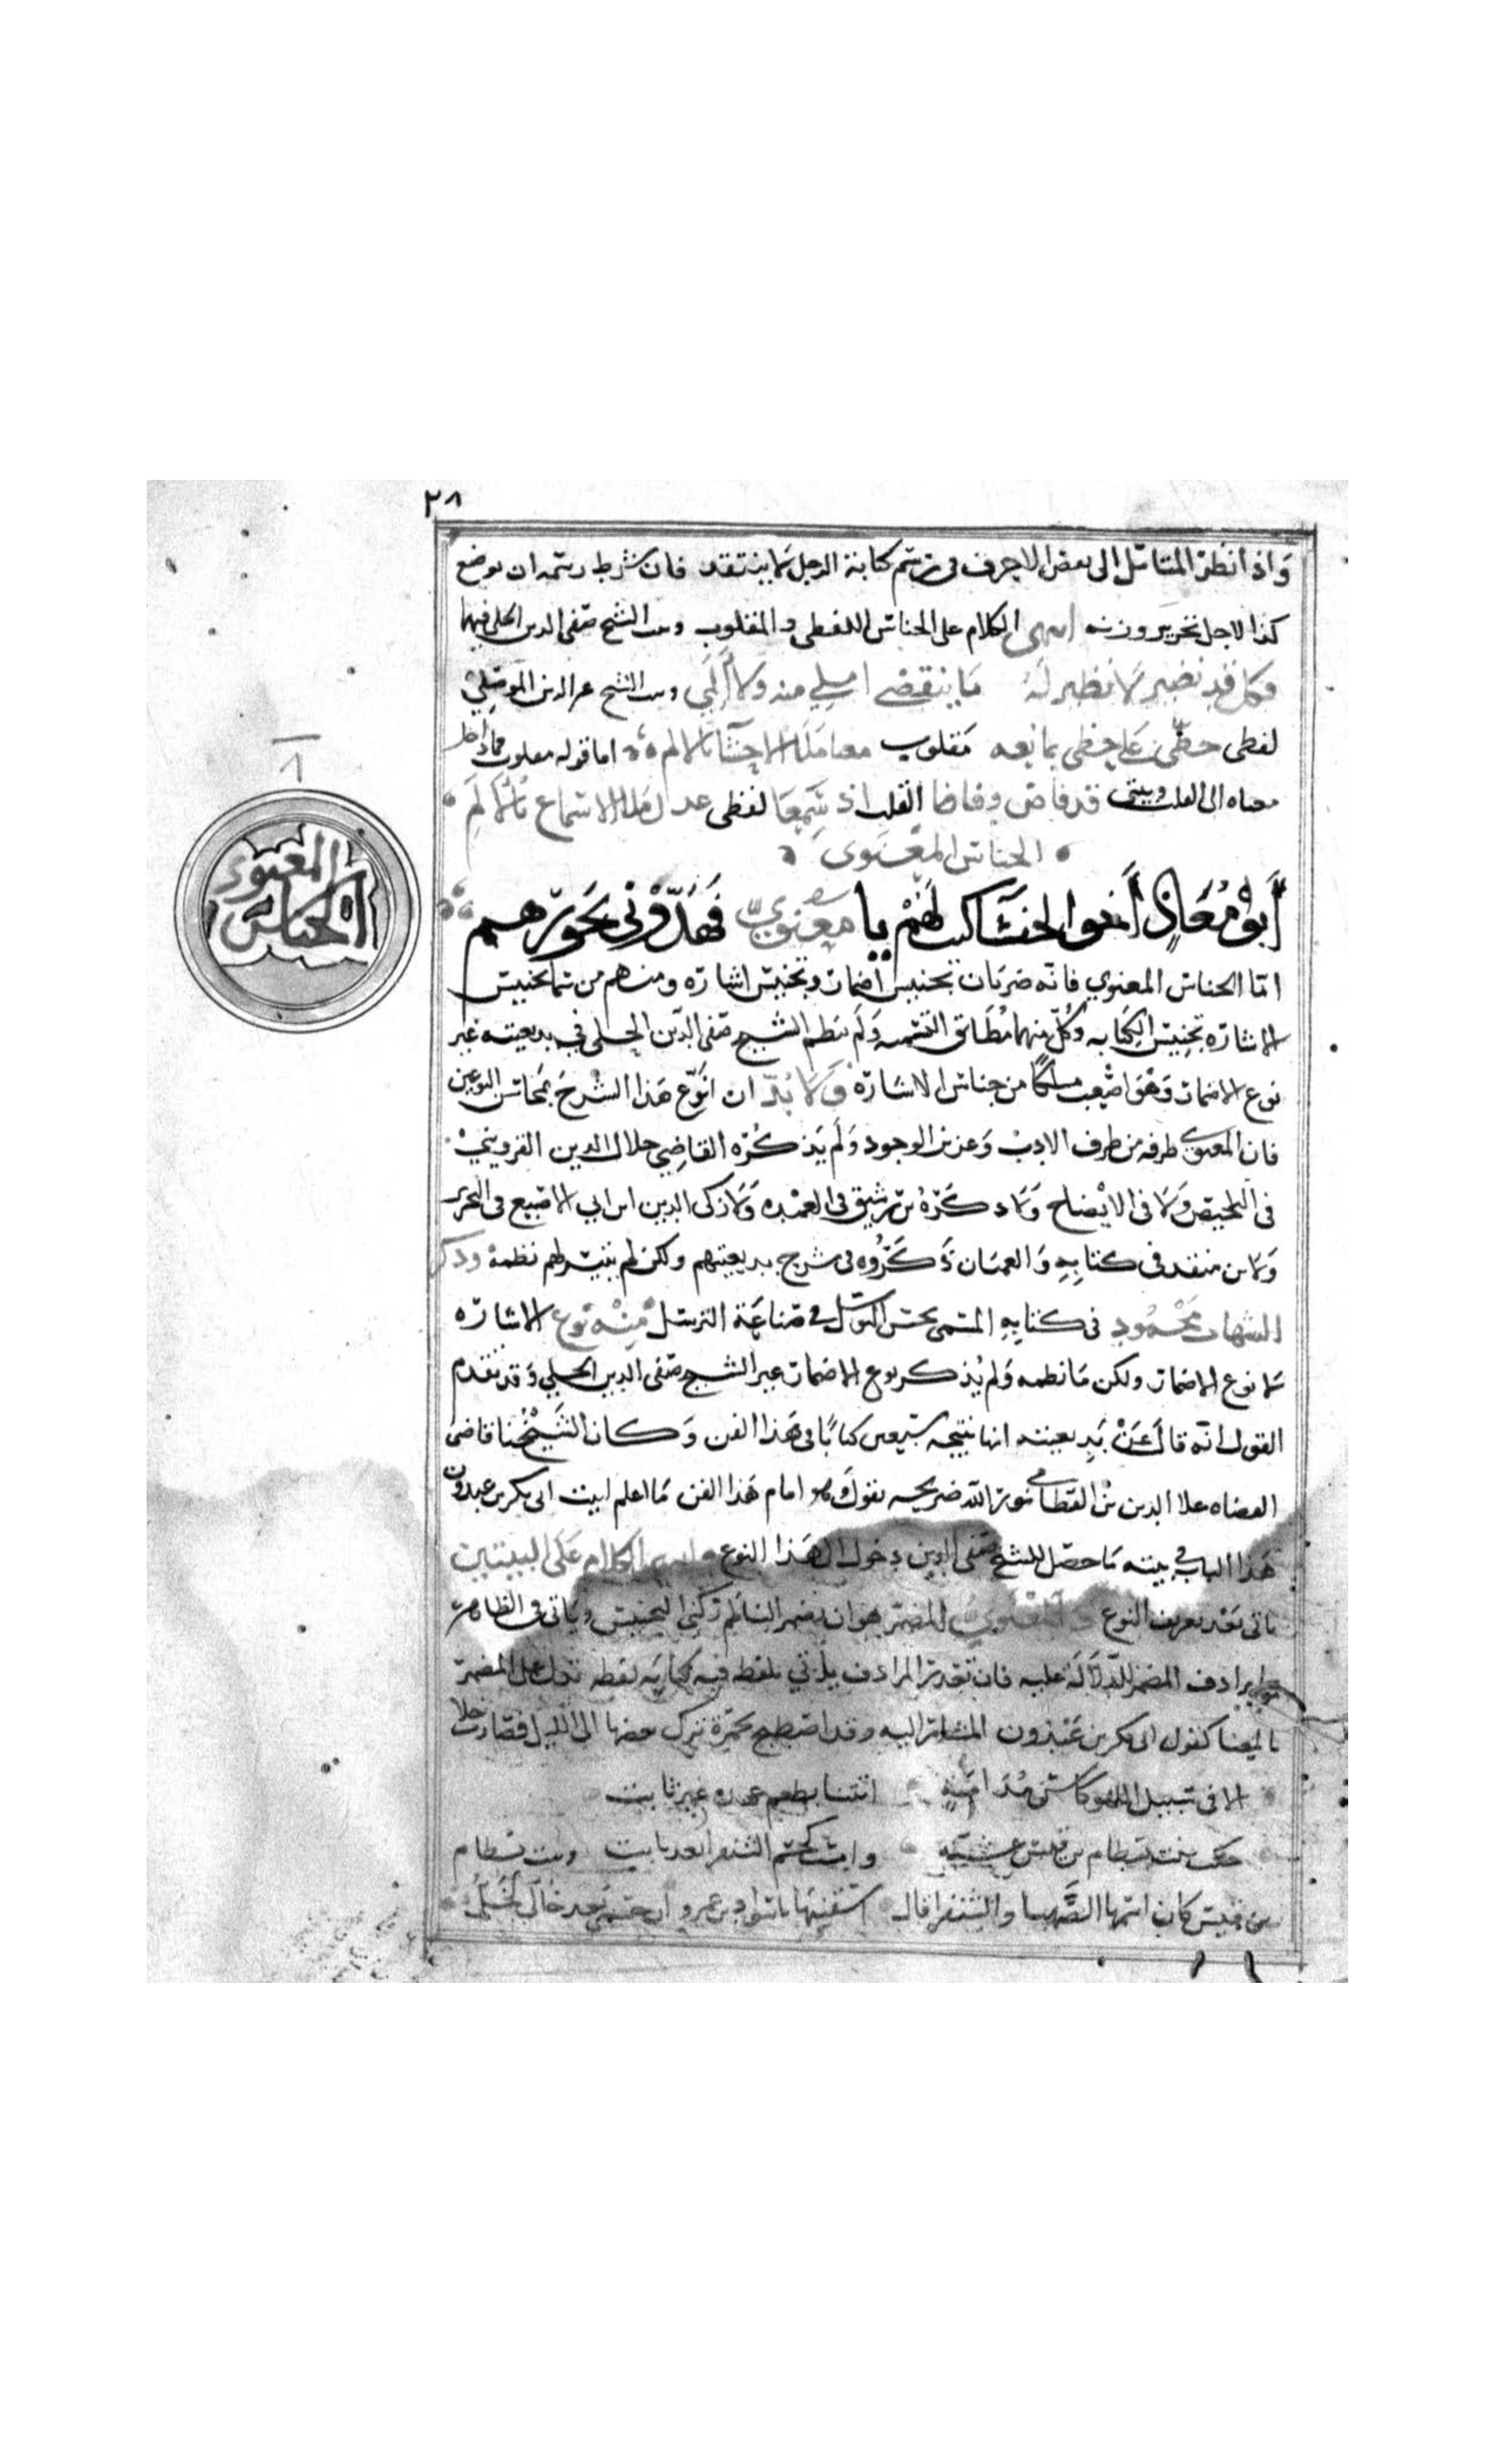 ٢٨
واذا نظر المتامل الى بعض الاحرف في رسم كتابة الرجل لا ينتقد فان شرط رسمه ان يوضع
كذا لاجل تحرير وزنه انتهى الكلام على الجناس اللفظي والمقلوب وبيت الشيخ صفي الدين الحلي فيهما
وكل قد نضير لا نظير له ما ينقضي املي منه ولا المي وبيت الشيخ عز الدين الموصلي
لفظي حظي على حظي بمانعه مقلوب معنا ملا الاحشا بالالم اما قوله مقلوب
معناه الى القلب وبيتي قد فاض وفاضا القلب اذ سمعا لفظي عدل ملا الاسماع بالالم
الجناس المعنوي
ابو معاذ اخو الخنسا كنت لهم يا معنوي فهدوني بجورهم
المعنوي
الجناس
٨
اما الجناس المعنوي فانه ضربان تجنيس اضمار وتجنيس اشارة ومنهم من سما تجنيس
الاشارة تجنيس الكناية وكل منهما مطابق التسمية ولم ينظم الشيخ صفي الدين الحلي في بديعيته غير
نوع الاضمار وهو اصعب مسلكا من جناس الاشارة ولا بد ان انوع هذا الشرح بمحاسن النوعين
فان المعنوي طرفه من طرف الادب وعزيز الوجود ولم يذكره القاضي جلال الدين القزويني
في التلخيص ولا في الايضاح ولا ذكره بن رشيق في العمدة ولا زكي الدين ابن ابي الاصبع في التحرير
ولا بن منقد في كتابه والعميان ذكروه في شرح بديعيتهم ولكن لم يتيسر لهم نظمه وذكر
الشهاب محمود في كتابه المسمى بحسن التوسل في صناعة الترسل منه نوع الاشارة
لا نوع الاضمار ولكن ما نظمه ولم يذكر نوع الاضمار غير الشيخ صفي الدين الحلي وقد تقدم
القول انه قال عن بديعيته انها نتيجة سبعين كتابا في هذا الفن وكان الشيخنا قاضي
القضاه علا الدين بن القضامي نور الله ضريحه يقول وهو امام هذا الفن ما اعلم لبيت ابي بكر بن عبدون
هذا الباب في بيته ما حصل للشيخ صفي الدين دخول الى هذا النوع الكلام على البيتين
ياتي بعد تعريف النوع المعنوي المضمر هو ان يضمر الناظم ركني التجنيس وياتي في الظاهر
بما يرادف المضمر للدلالة عليه فان تعذر المرادف ياتي بلفظ فيه كناية لفظه تدل على المضمر
بالمعنا كقول ابي بكر بن عبدون المشار اليه وقد اصطبح بخمرة ترك بعضها الى الليل فصارت خلا
الا في سبيل اللهو كاس مدامة اتتنا بطعم عهده غير ثابت
حكت بنت بسطام بن قيس عشية وامست كجسم الشنفرا بعد ثابت وبنت بسطام
بن قيس كان اسمها الصهبا والشنفرا قال اسقنيها ياسواد بن عمرو ان جسمي بعد خالي لخل